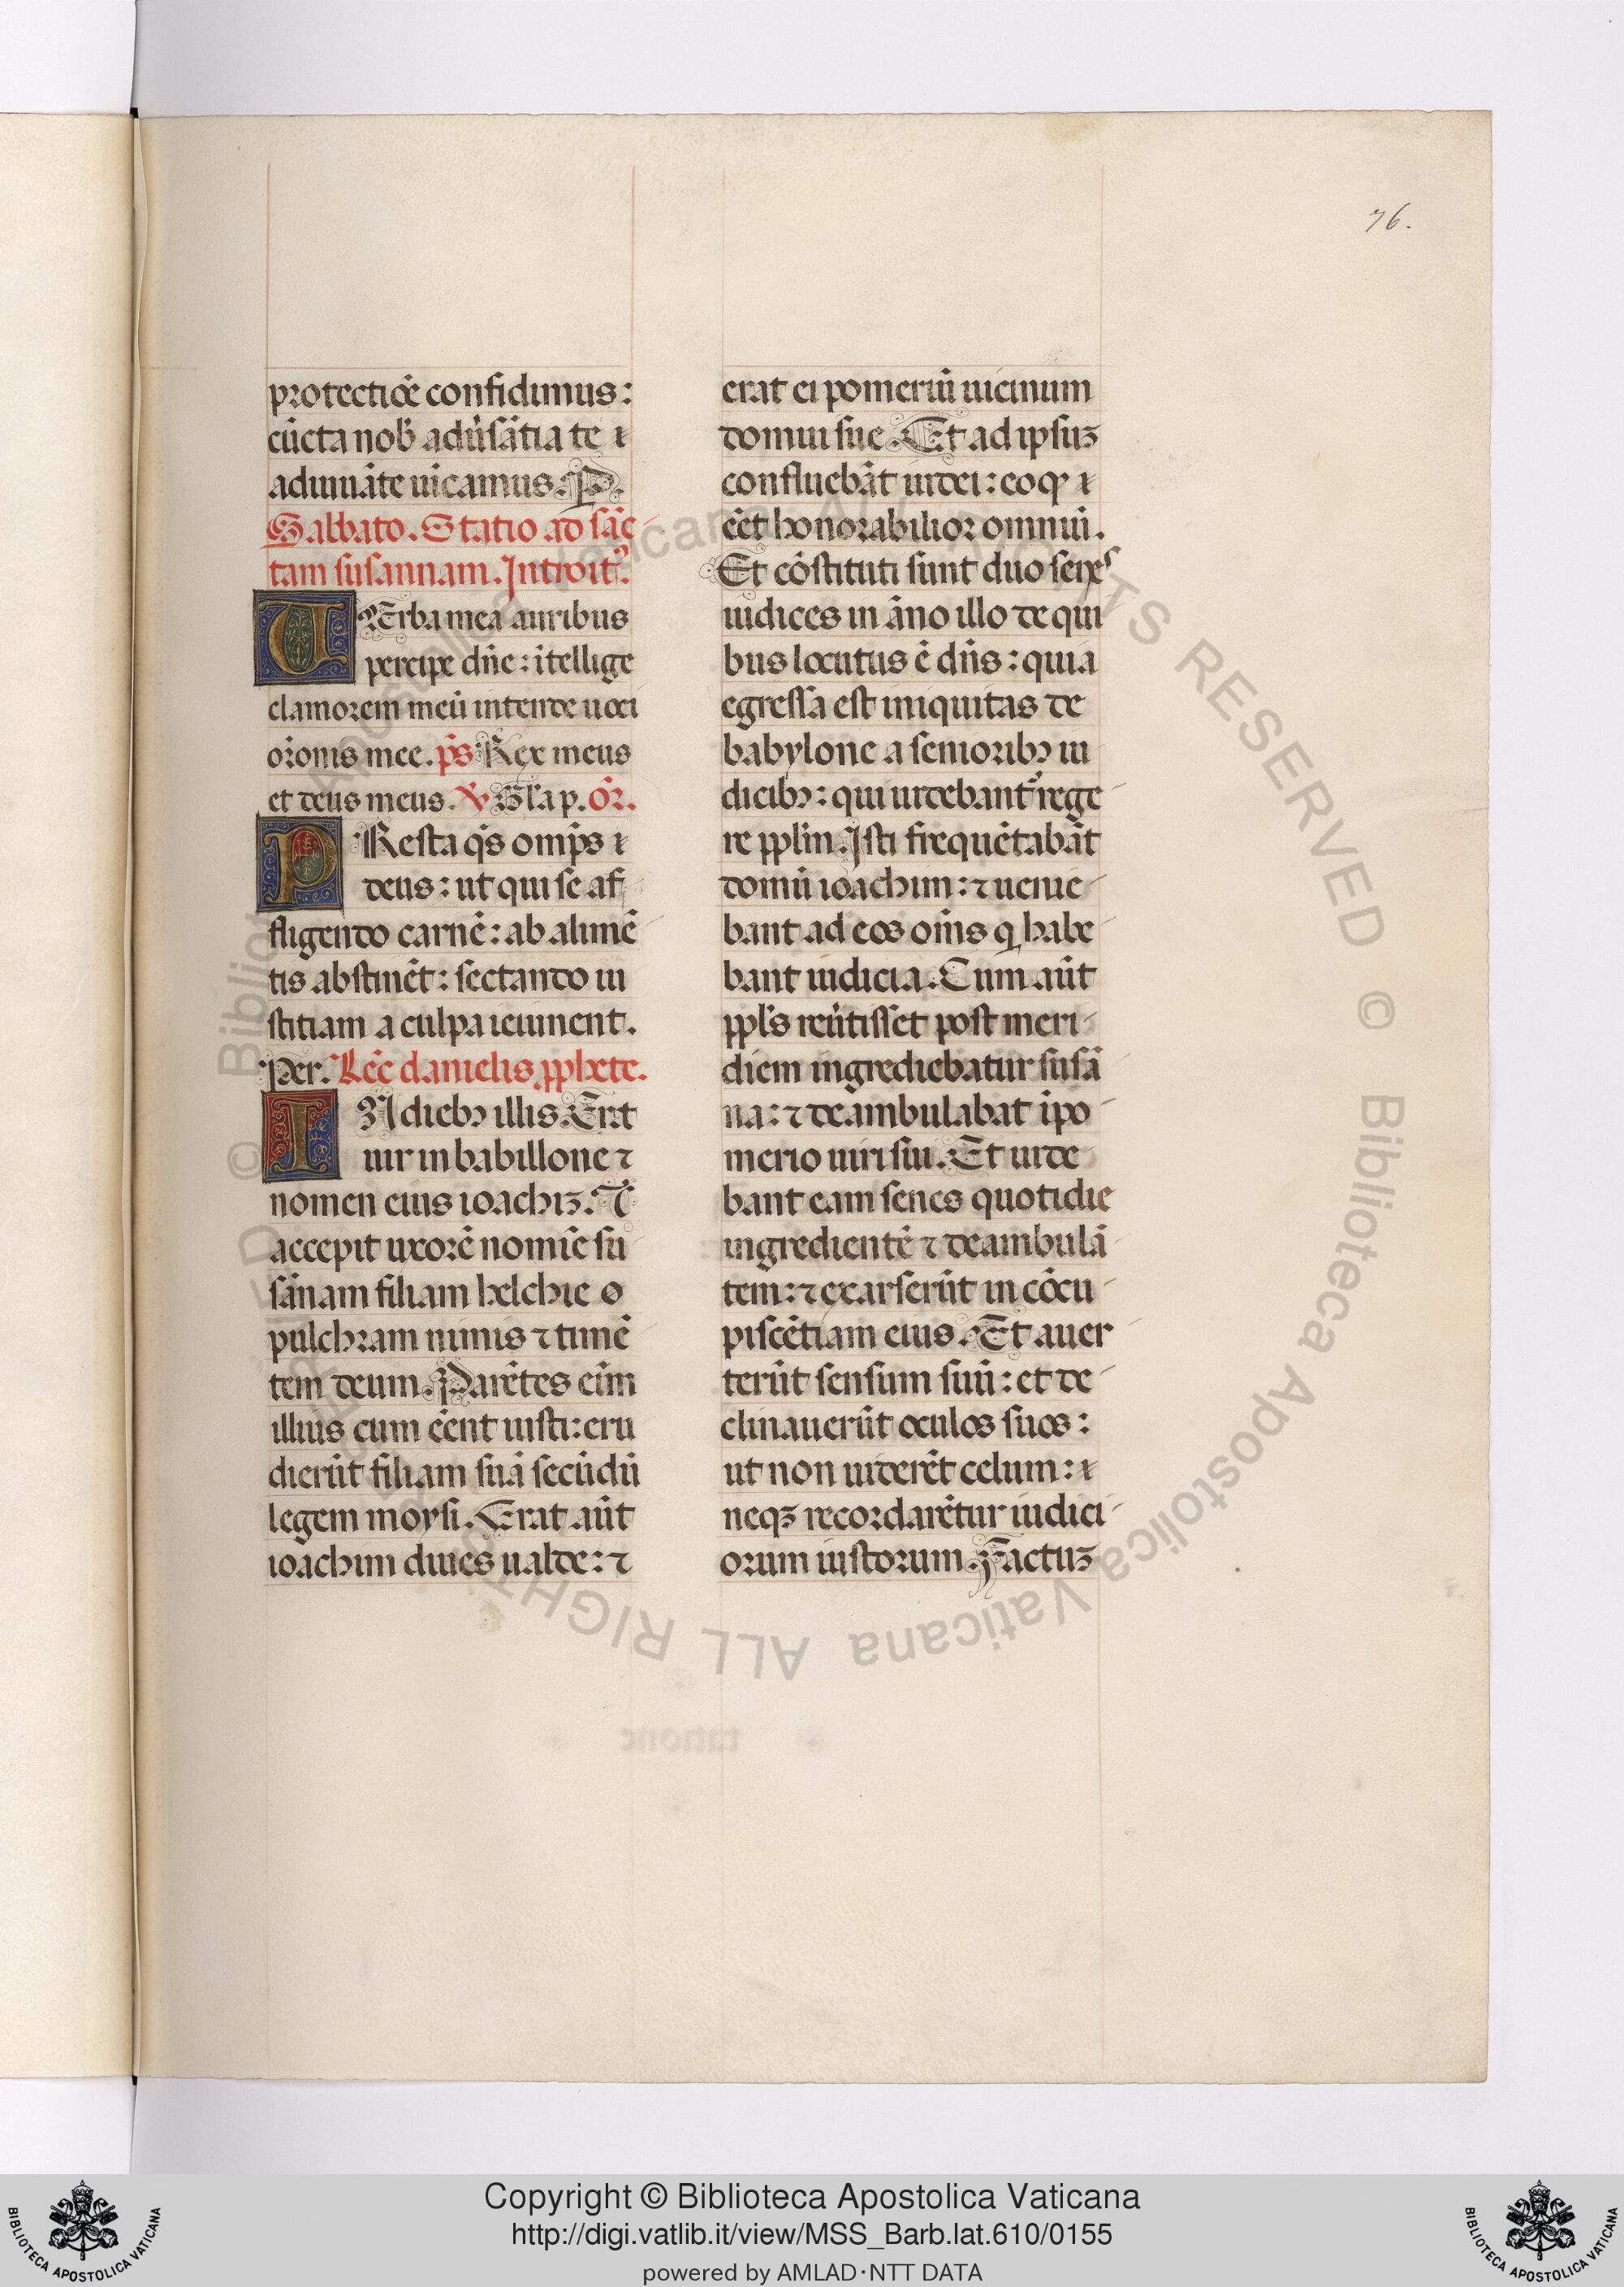 76.
protectiōe confidimus:
cūcta nob̄ adūsātia te
adiuuāte uīcamus. P
Sabbato. Statio ad sāc
tam susannam. Introit⁹.
VErba mea auribus
percipe dn̄e: ītellige
clamorem meū intende uoci
or̄onis mee. p̄s. Rex meus
et deus meus. ℣ Gl̄a p. Or̄.
PResta q̄s omp̄s
deus: ut qui se af
fligendo carnē: ab alimē
tis abstinēt: sectando iu
stitiam a culpa ieiunent.
Per. Lēc danielis pphete.
IN dieb⁊ illis. Erāt
uir in babillone ⁊
nomen eius ioachiʒ. ⁊
accepit uxorē nomīe su
sānam filiam helchie
pulchram nimis ⁊ timē
tem deum. Parētes eīm
illius cum ēent iusti: eru
dierūt filiam suā secūdū
legem moysi. Erat aūt
ioachim diues ualde: ⁊
erat ei pomeriū uicinum
domui sue. Et ad ipsuʒ
confluebāt iudei: eoq
ēet honorabilior omniū.
Et cōstituti sunt duo senes
iudices in āno illo de qui
bus locutus ē dn̄s: quia
egressa est iniquitas de
babylone a seniorib⁊ iu
dicib⁊: qui uidebant᷑ rege
re pplm̄. Isti frequētabāt
domū ioachim: ⁊ uenie
bant ad eos om̄s q habe
bant iudicia. Cum aūt
ppl̄s reūtisset post meri
diem ingrediebatur susā
na: ⁊ deambulabat ī po
merio uiri sui. Et uide
bant eam senes quotidie
ingredientē ⁊ deambulā
tem: ⁊ exarserūt in cōcu
piscētiam eius. Et auer
terūt sensum suū: et de
clinauerūt oculos suos:
ut non uiderēt celum:
neqʒ recordarētur iudici
orum iustorum. Factuʒ
Copyright © Biblioteca Apostolica Vaticana
http://digi.vatlib.it/view/MSS_Barb.lat.610/0155
powered by AMLAD·NTT DATA
BIBLIOTECA APOSTOLICA VATICANA
BIBLIOTECA APOSTOLICA VATICANA
© Biblioteca Apostolica Vaticana ALL RIGHTS RESERVED © Biblioteca Apostolica Vaticana ALL RIGHTS RESERVED